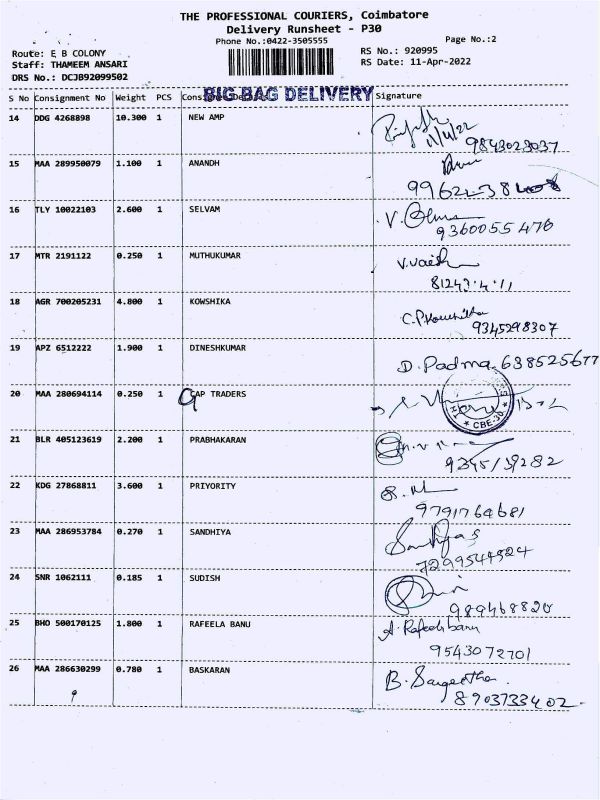 THE PROFESSIONAL COURIERS, Coimbatore
Delivery Runsheet - P30
Phone No.:0422-3505555
Page No.:2
Route: E B COLONY
RS No.: 920995
Staff: THAMEEM ANSARI
RS Date: 11-Apr-2022
DRS No.: DCJB92099502
BIG BAG DELIVERY
S No Consignment No Weight PCS Signature
14 DDG 4268898 10.300 1 NEW AMP
11/4/22
9843023037
15 MAA 289950079 1.100 1 ANANDH
16 TLY 10022103 2.600 1 SELVAM V.
9360055470
17 MTR 2191122 0.250 1 MUTHUKUMAR
18 AGR 700205231 4.800 1 KOWSHIKA
9345298307
19 APZ 6512222 1.900 1 DINESHKUMAR D. Padma. 638525677
20 MAA 280694114 0.250 1 GAP TRADERS
CBE-30
21 BLR 405123619 2.200 1 PRABHAKARAN
22 KDG 27868811 3.600 1 PRIYORITY
9791764681
23 MAA 286953784 0.270 1 SANDHIYA
7299544524
24 SNR 1062111 0.185 1 SUDISH
989468820
25 BHO 500170125 1.800 1 RAFEELA BANU A. Rafeelabanu
9543072701
26 MAA 286630299 0.780 1 BASKARAN B. Sangeetha
8903733402